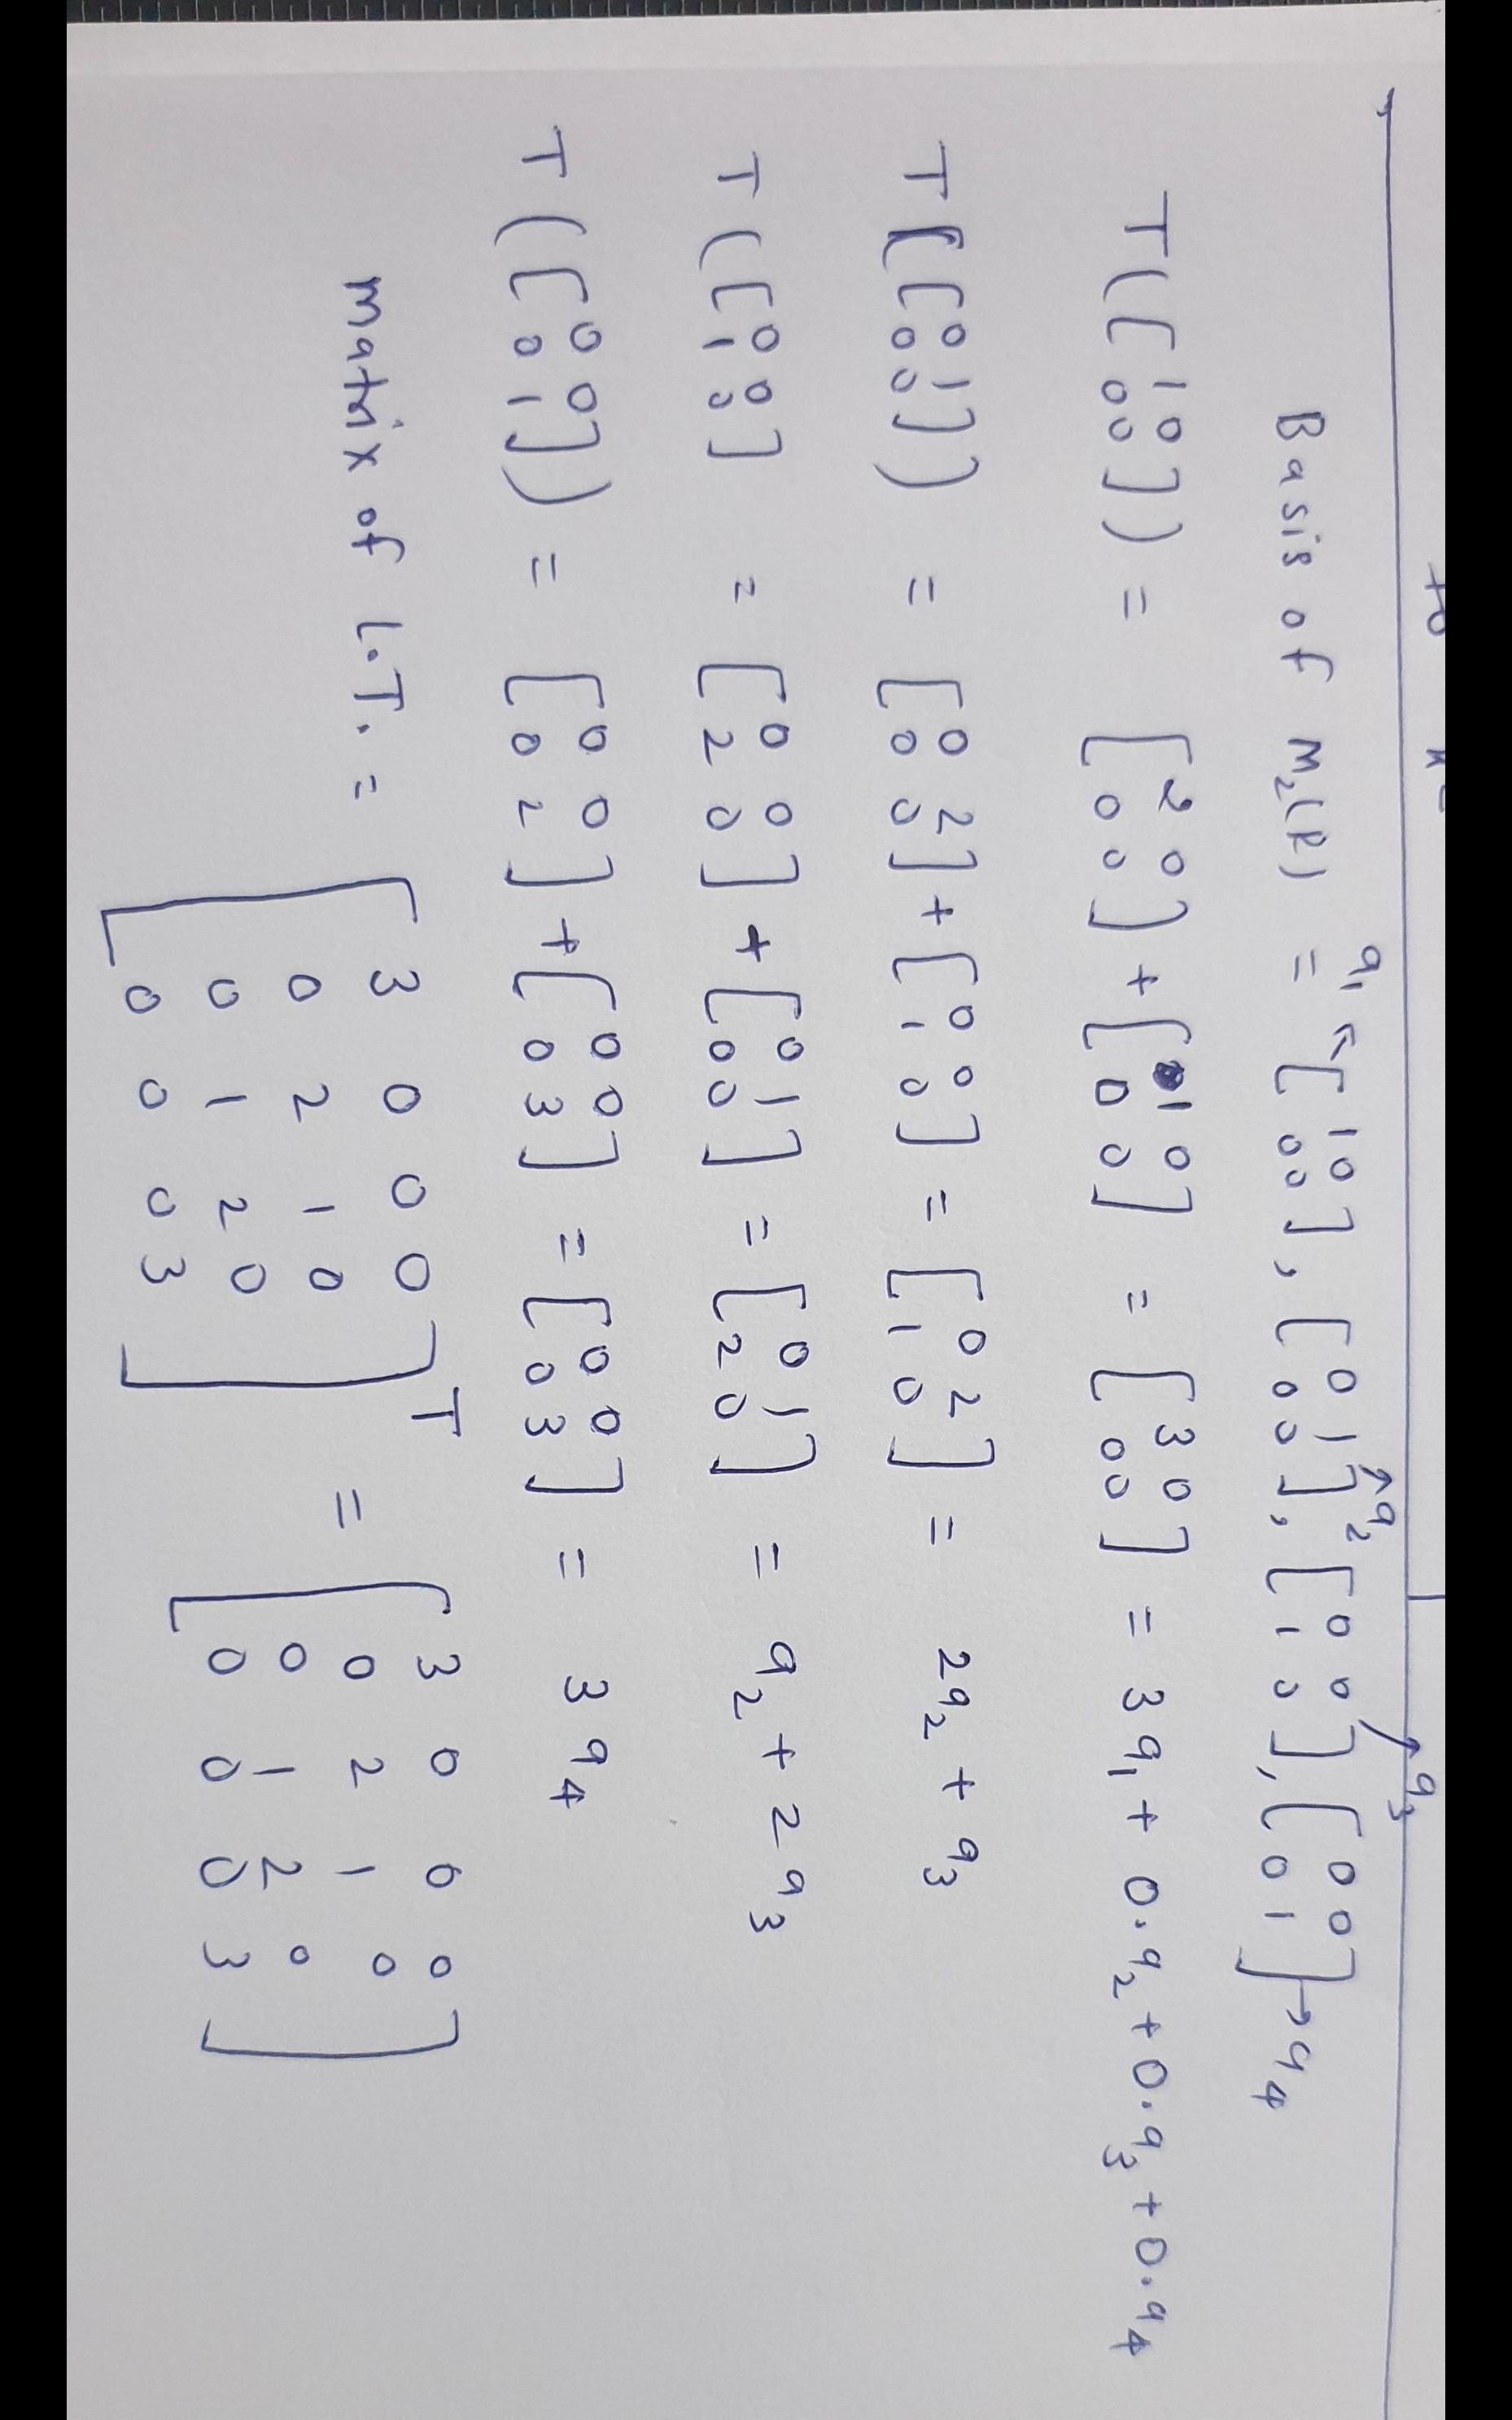 Basis of M₂(R) = a₁ ↖ [1 0; 0 0], [0 1; 0 0] ↗ a₂, [0 0; 1 0] ↗ a₃, [0 0; 0 1] → a₄
T([1 0; 0 0]) = [2 0; 0 0] + [1 0; 0 0] = [3 0; 0 0] = 3a₁ + 0.a₂ + 0.a₃ + 0.a₄
T([0 1; 0 0]) = [0 2; 0 0] + [0 0; 1 0] = [0 2; 1 0] = 2a₂ + a₃
T([0 0; 1 0] = [0 0; 2 0] + [0 1; 0 0] = [0 1; 2 0] = a₂ + 2a₃
T([0 0; 0 1]) = [0 0; 0 2] + [0 0; 0 3] = [0 0; 0 3] = 3a₄
matrix of L.T. = [3 0 0 0; 0 2 1 0; 0 1 2 0; 0 0 0 3]ᵀ = [3 0 0 0; 0 2 1 0; 0 1 2 0; 0 0 0 3]